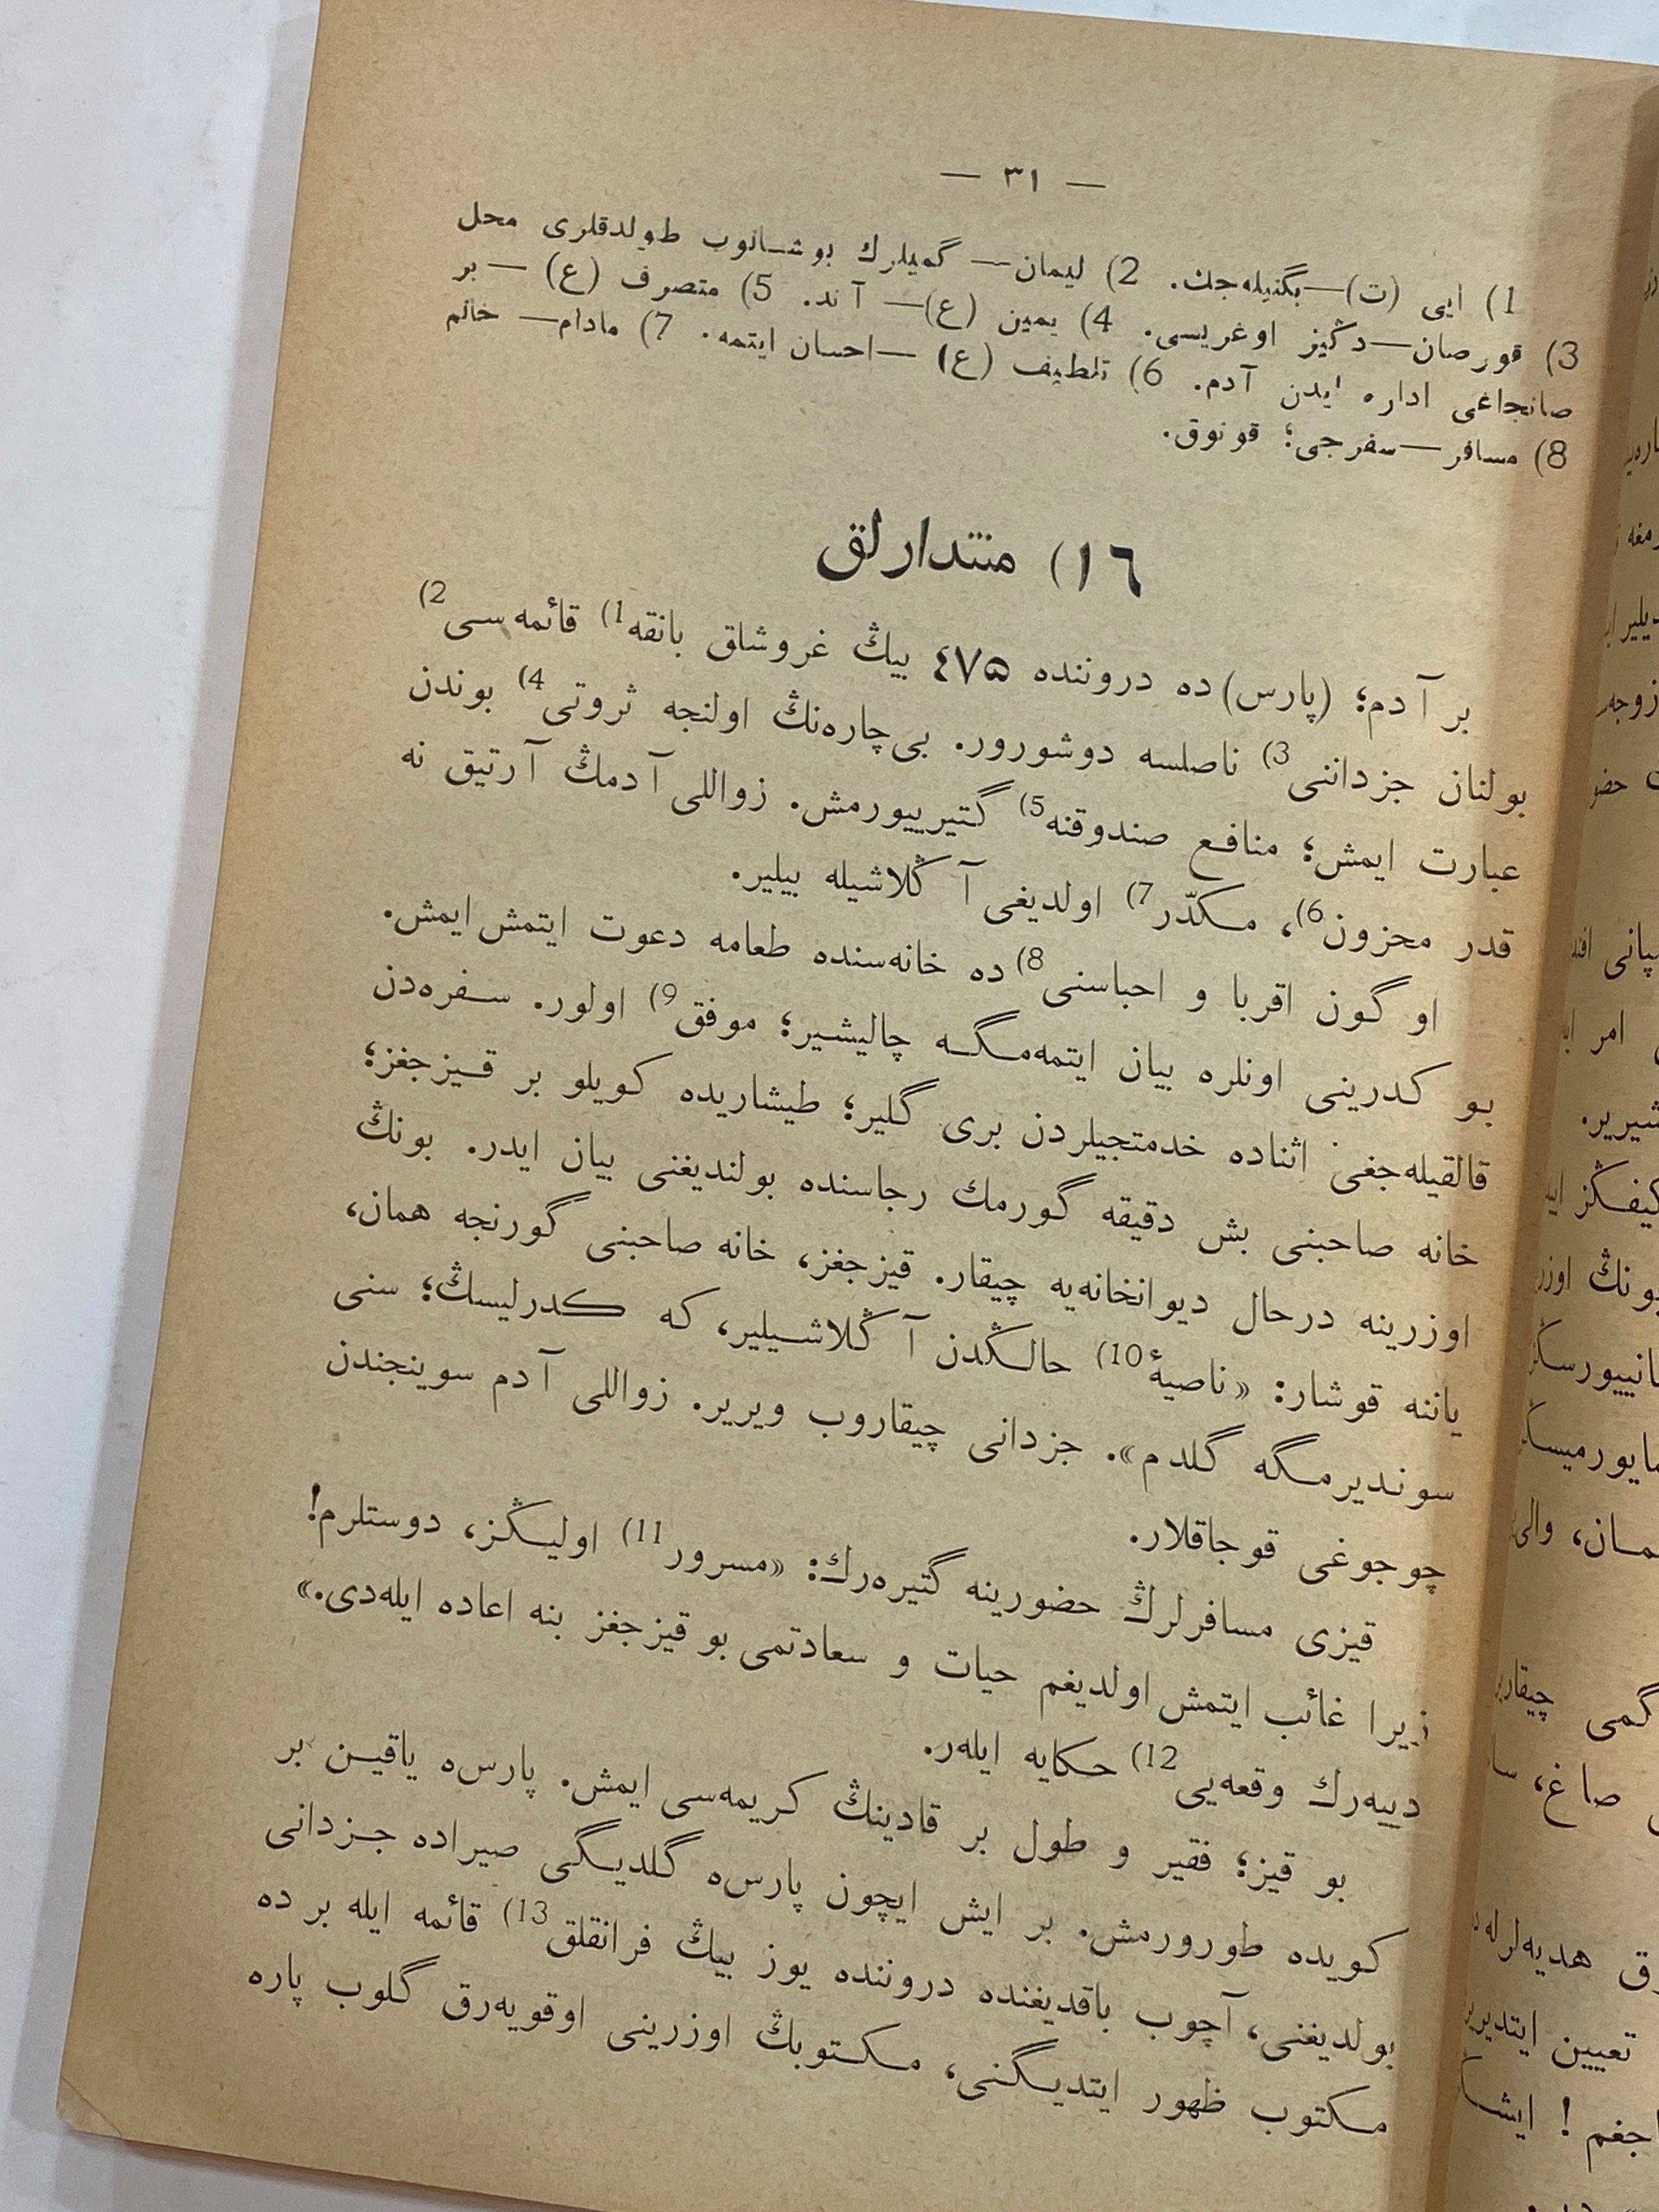 — ٣١ —
1) ایی (ت)—بگنیله‌جك. 2) لیمان— گمیلرك بوشانوب طولدقلری محل
3) قورصان—دڭیز اوغریسی. 4) یمین (ع)— آند. 5) متصرف (ع) —بر
صانجاغی اداره ایدن آدم. 6) تلطیف (ع) —احسان ایتمه. 7) مادام— خانم
8) مسافر—سفرجی؛ قونوق.
١٦) منتدارلق
بر آدم؛ (پارس) ده دروننده ٤٧۵ بیڭ غروشاق بانقه1) قائمه‌سی2)
بولنان جزداننی3) ناصلسه دوشورور. بی‌چاره‌نڭ اولنجه ثروتی4) بوندن
عبارت ایمش؛ منافع صندوقنه5) گتیرییورمش. زواللی آدمڭ آرتیق نه
قدر محزون6)، مكدّر7) اولدیغی آڭلاشیله بیلیر.
او گون اقربا و احباسنی8) ده خانه‌سنده طعامه دعوت ایتمش ایمش.
بو كدرینی اونلره بیان ایتمه‌مگه چالیشیر؛ موفق9) اولور. سفره‌دن
قالقیله‌جغی اثناده خدمتجیلردن بری گلیر؛ طیشاریده كویلو بر قیزجغز؛
خانه صاحبنی بش دقیقه گورمك رجاسنده بولندیغنی بیان ایدر. بونڭ
اوزرینه درحال دیوانخانه‌یه چیقار. قیزجغز، خانه صاحبنی گورنجه همان،
یاننه قوشار: «ناصیۀ10) حالڭدن آڭلاشیلیر، كه كدرلیسڭ؛ سنی
سوندیرمگه گلدم». جزدانی چیقاروب ویریر. زواللی آدم سوینجندن
چوجوغی قوجاقلار.
قیزی مسافرلرڭ حضورینه گتیره‌رك: «مسرور11) اولیڭز، دوستلرم!
زیرا غائب ایتمش اولدیغم حیات و سعادتمی بو قیزجغز بنه اعاده ایله‌دی.»
دییه‌رك وقعه‌یی12) حكایه ایله‌ر.
بو قیز؛ فقیر و طول بر قادینڭ كریمه‌سی ایمش. پارس‌ه یاقین بر
كویده طورورمش. بر ایش ایچون پارس‌ه گلدیگی صیراده جزدانی
بولدیغنی، آچوب باقدیغنده دروننده یوز بیڭ فرانقلق13) قائمه ایله بر ده
مكتوب ظهور ایتدیگنی، مكتوبڭ اوزرینی اوقویه‌رق گلوب پاره